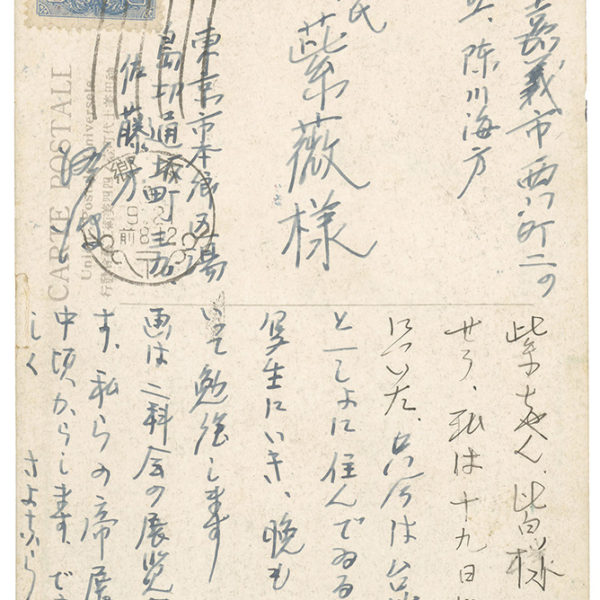 嘉義市西門町二の
陳川海方
氏
紫薇様
東京市本
通
町
佐藤方
CARTE POSTALE
Union Postale Universelle
紫ちやん、皆様
せう、私は十九日
についた、只今は台
と一しよに住んでゐる
写生にいき、晩も
いつて勉強します
画は二科会の展覧
す、私らの帝展
中頃からします、で
しく
さよなら